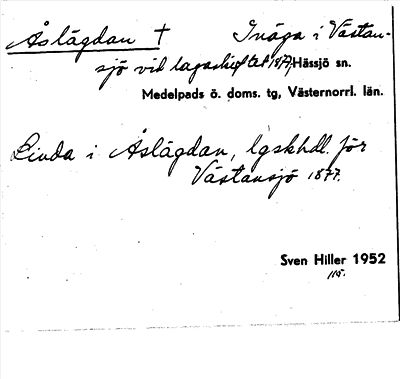 Åslägdan † Inäga i Västan-
sjö vid lagaskiftet 1877, Hässjö sn.
Medelpads ö. doms. tg, Västernorrl. län.
Linda i Åslägdan, lgskhdl. för
Västansjö 1877.
Sven Hiller 1952
115.